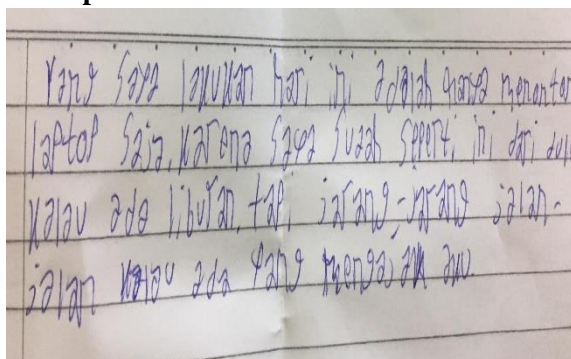 Yang saya lakukan hari ini adalah hanya menonton
laptop saja, karena saya sudah seperti ini dari dulu
kalau ada liburan, tapi jarang-jarang jalan-
jalan kalau ada yang mengajak aku.